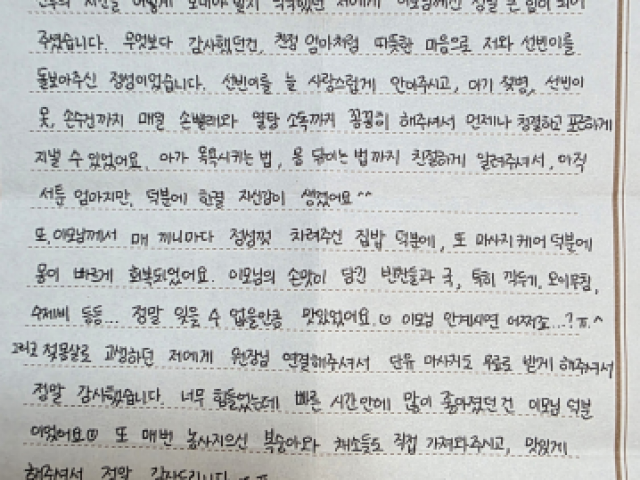 전무의 시간을 어떻게 보내야 할지 막막했던 저에게 이모님께선 정말 큰 힘이 되어
주셨습니다. 무엇보다 감사했던건, 친정 엄마처럼 따뜻한 마음으로 저와 선빈이를
돌보아주신 정성이었습니다. 선빈이를 늘 사랑스럽게 안아주시고, 아기 젖병, 선빈이
옷, 손수건까지 매일 손빨래와 열탕 소독까지 꼼꼼히 해주셔서 언제나 청결하고 포근하게
지낼 수 있었어요. 아가 목욕시키는 법, 몸 닦이는 법까지 친절하게 알려주셔서, 아직
서툰 엄마지만, 덕분에 한결 자신감이 생겼어요^^
또, 이모님께서 매 끼니마다 정성껏 차려주신 집밥 덕분에, 또 마사지 케어 덕분에
몸이 빠르게 회복되었어요. 이모님의 손맛이 담긴 반찬들과 국, 특히 깍두기, 오이무침,
수제비 등등... 정말 잊을 수 없을만큼 맛있었어요☺ 이모님 안계시면 어쩌죠...?ㅠ^
그리고 젖몸살로 고생하던 저에게 원장님 연결해주셔서 단유 마사지도 무료로 받게 해주셔서
정말 감사했습니다. 너무 힘들었는데 빠른 시간안에 많이 좋아졌던 건 이모님 덕분
이었어요☺ 또 매번 농사지으신 복숭아와 채소들도 직접 가져와주시고, 맛있게
해주셔서 정말 감사드립니다